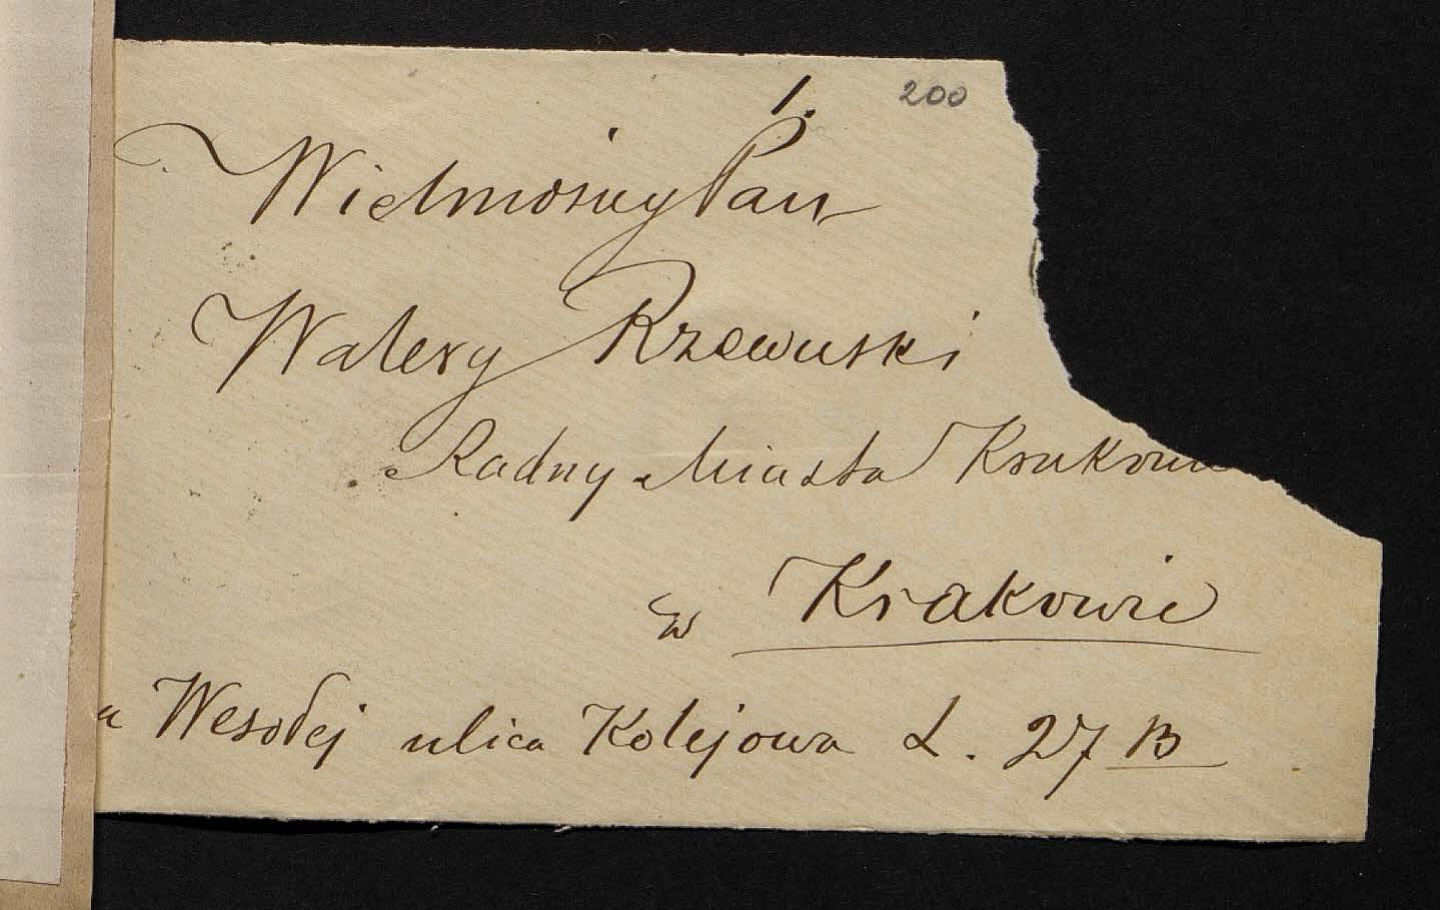 1.
200
Wielmożny Pan
Walery Rzewuski
Radny Miasta Krakowa
w Krakowie
a Wesołej ulica Kolejowa L. 27 B